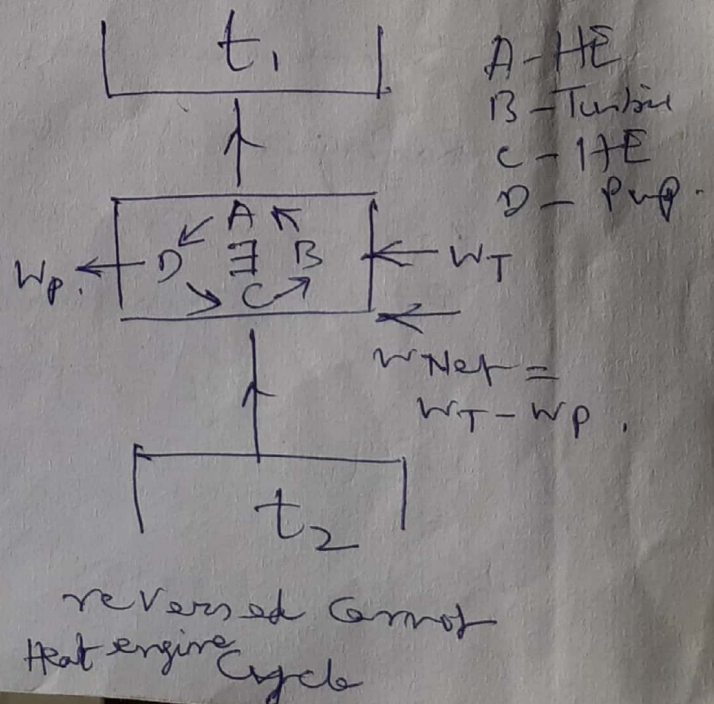 t₁
A - HE
B - Turbine
C - HE
D - Pump.
A
D E B
C
Wp.
WT
WNet =
WT - WP.
t₂
reversed Carnot
Heat engine
Cycle